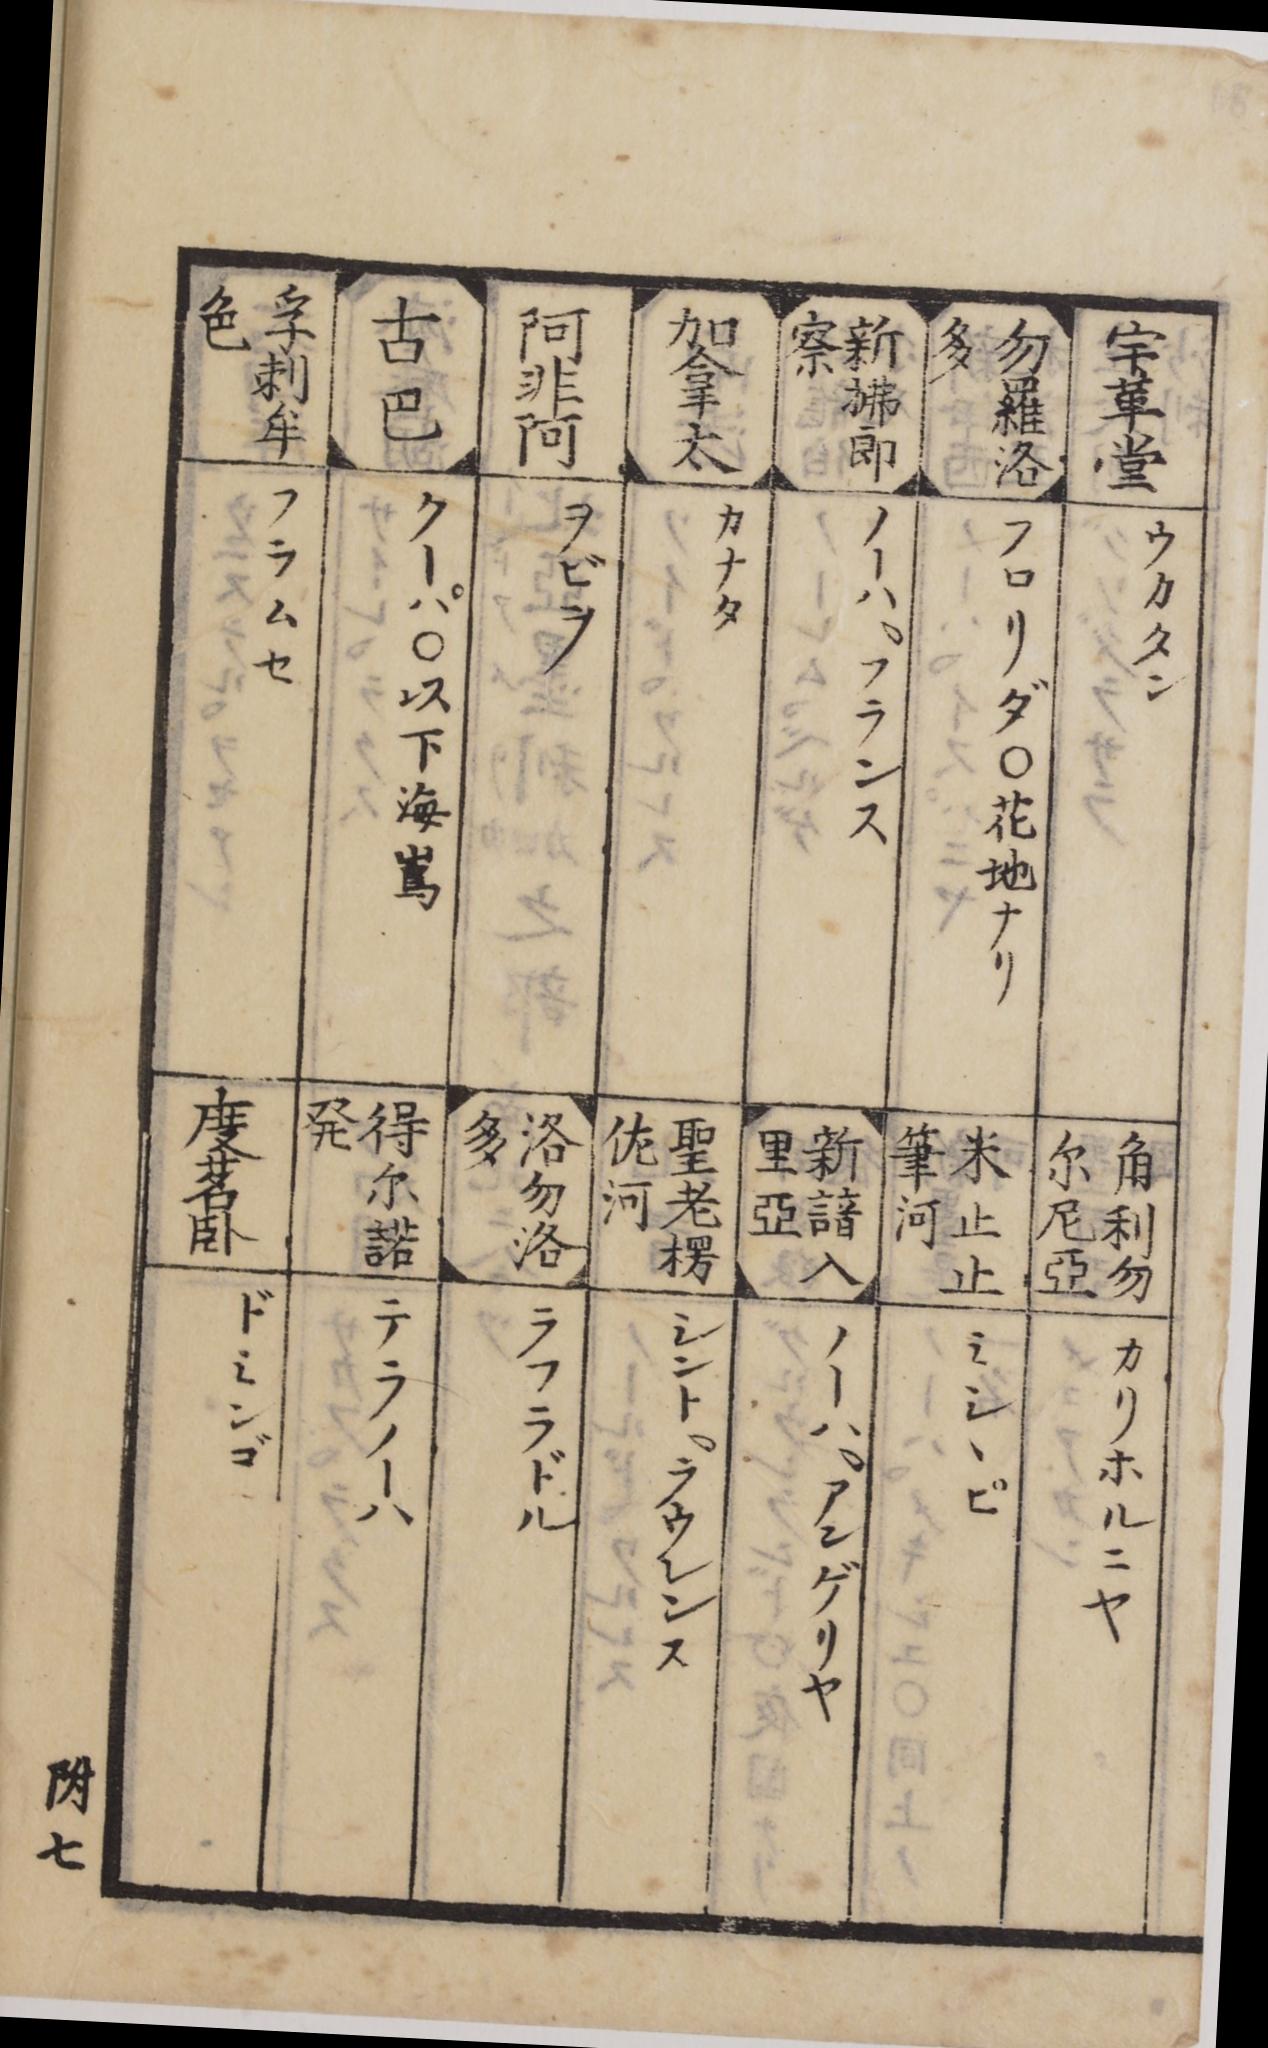 宇革堂
ウカタン
角利勿
尔尼亞
カリホルニヤ
勿羅洛
多
フロリダ〇花地ナリ
米止止
筆河
ミシヽピ
新拂郎
察
ノーハ。フランス
新諳入
里亞
ノーハ。アンゲリヤ
加拿太
カナタ
聖老楞
佐河
シント。ラウレンス
阿非阿
ヲビヲ
洛勿洛
多
ラフラドル
古巴
クーパ〇以下海嶌
得尔諾
発
テラノーハ
孚刺牟
色
フラムセ
度茗臥
ドミンゴ
附七